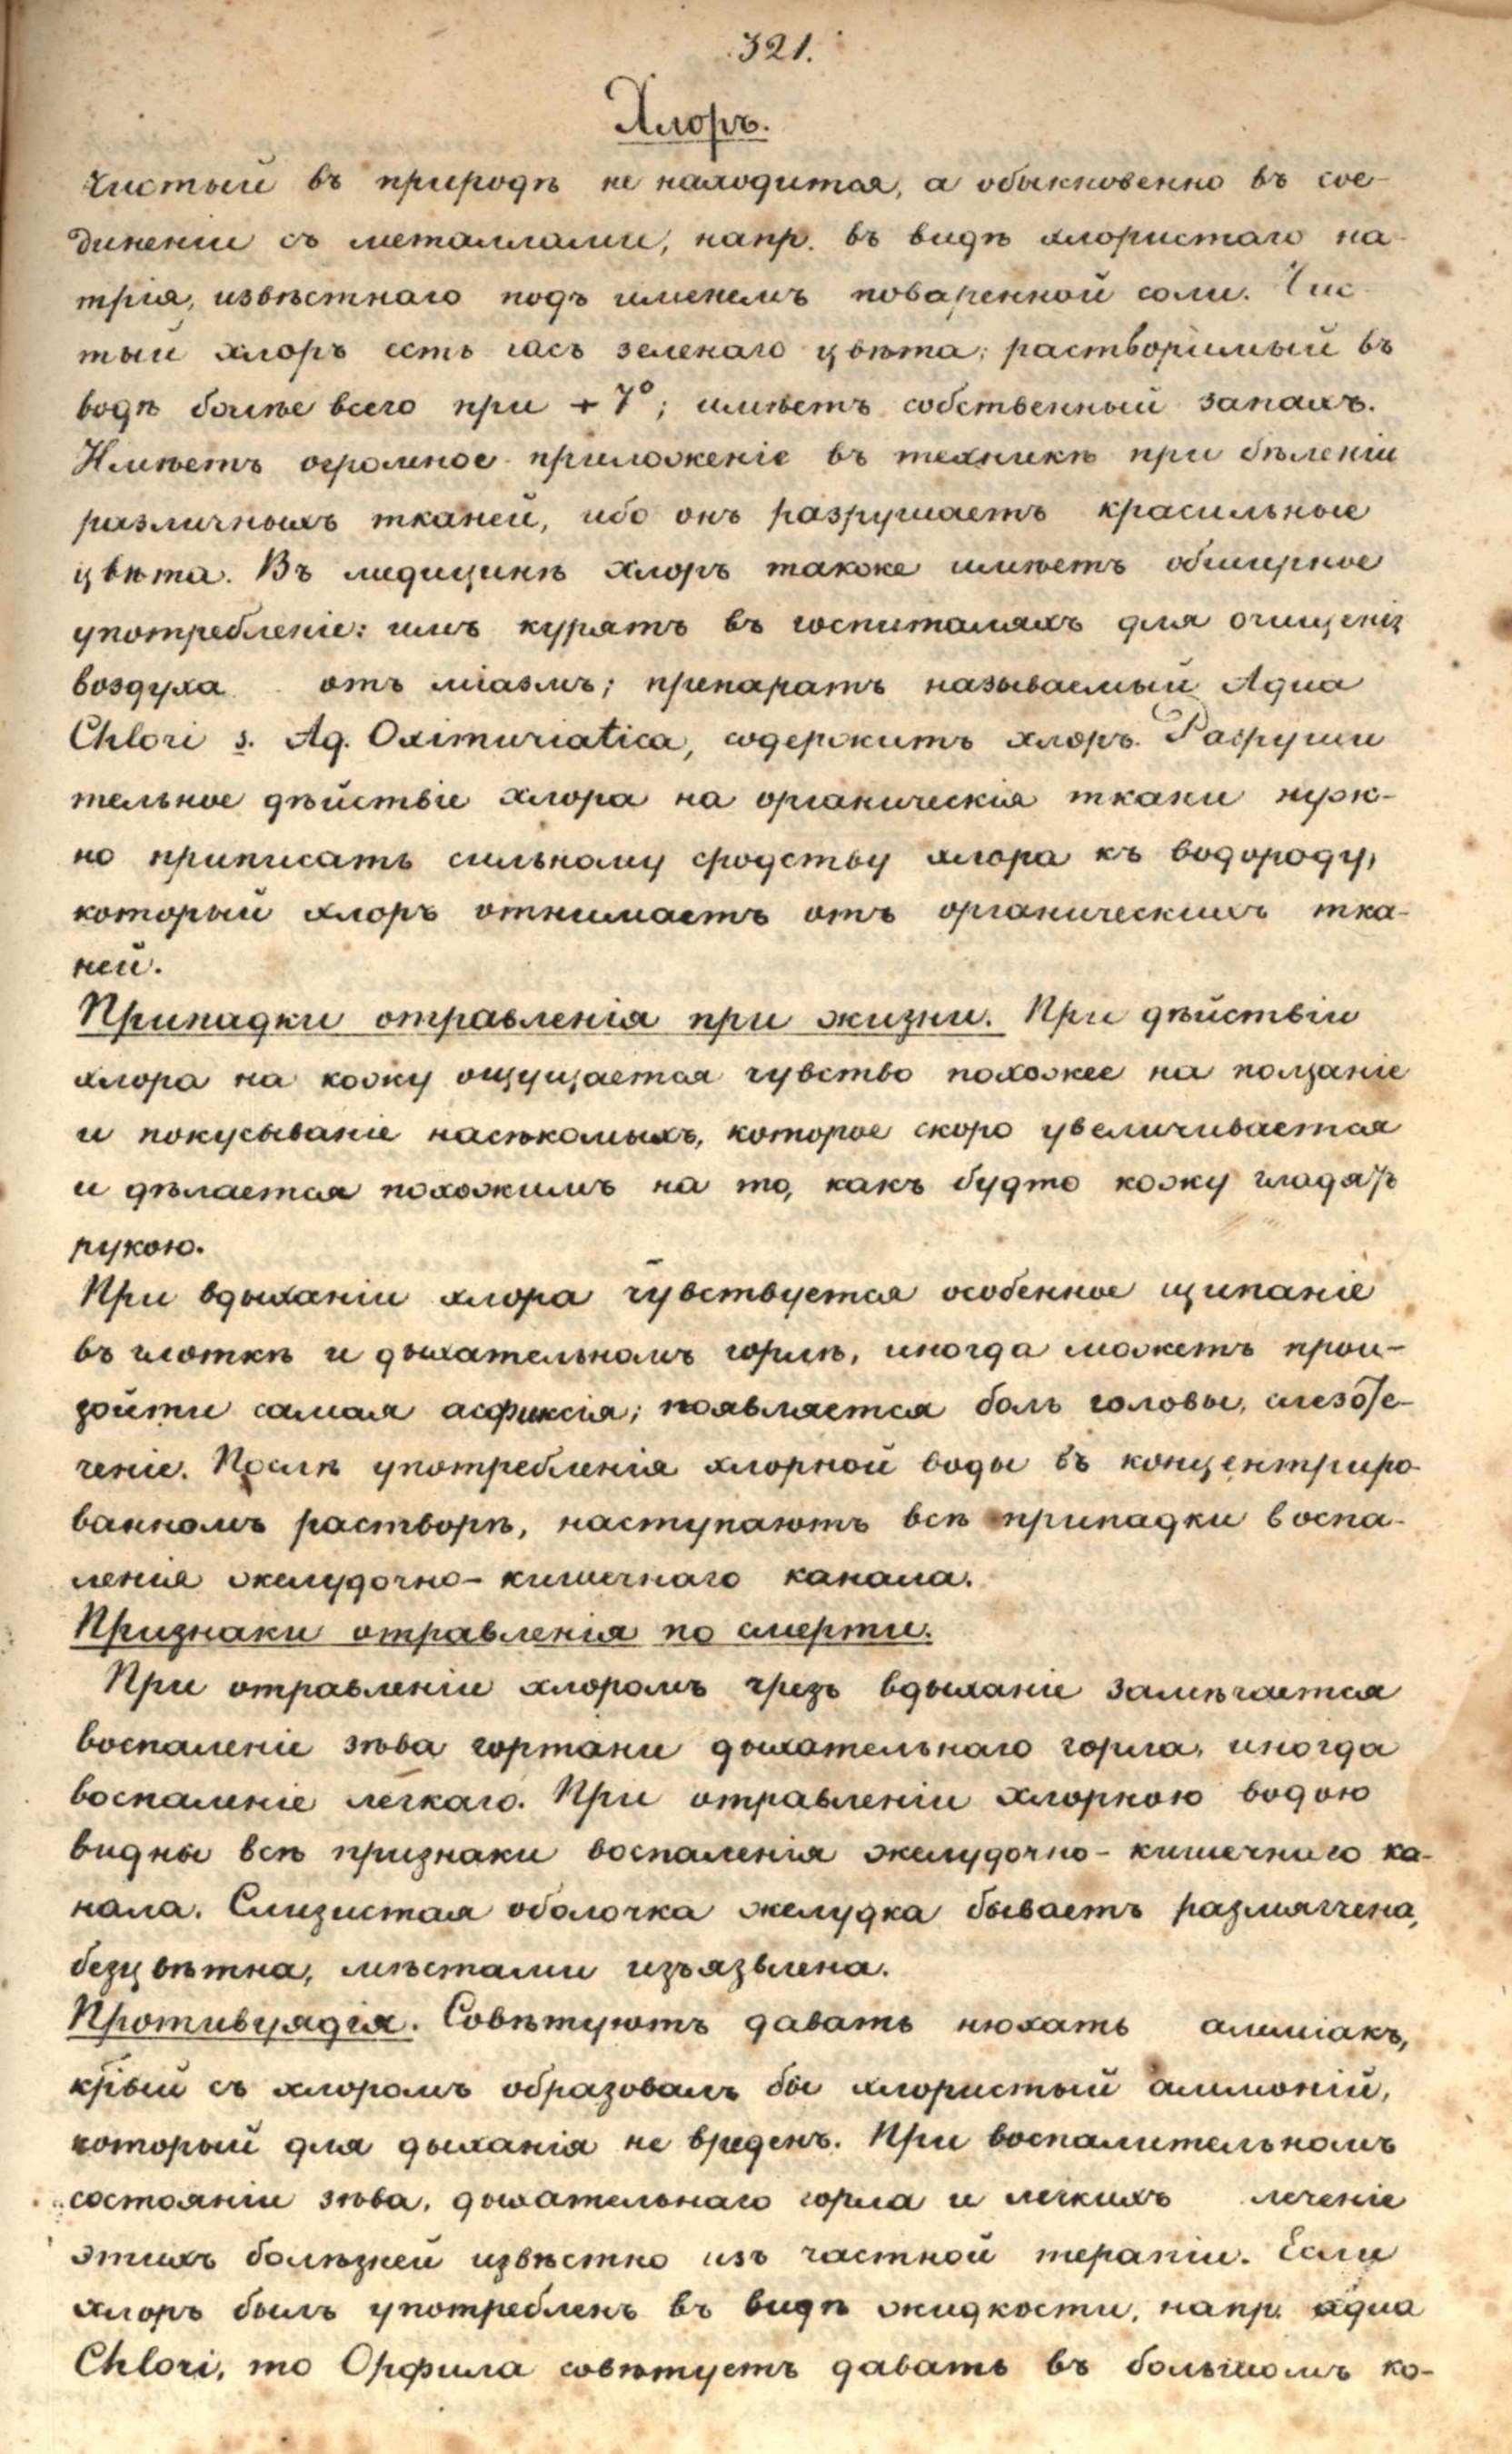 321.
Хлоръ.
Чистый въ природѣ не находится, а обыкновенно въ сое-
диненіи съ металлами, напр. въ видѣ хлористаго на-
трія, извѣстнаго подъ именемъ поваренной соли. Чис-
тый хлоръ есть гасъ зеленаго цвѣта; растворимый въ
водѣ болѣе всего при + 7°; имѣетъ собственный запахъ.
Имѣетъ огромное приложеніе въ техникѣ при бѣленіи
различныхъ тканей, ибо онъ разрушаетъ красильные
цвѣта. Въ медицинѣ хлоръ также имѣетъ обширное
употребленіе: имъ курятъ въ госпиталяхъ для очищенія
воздуха отъ міазмъ; препаратъ называемый Aqua
Chlori s. Aq. Oximuriatica, содержитъ хлоръ. Разруши
тельное дѣйствіе хлора на органическія ткани нуж-
но приписать сильному сродству хлора къ водороду,
который хлоръ отнимаетъ отъ органическихъ тка-
ней.
Припадки отравленія при жизни. При дѣйствіи
хлора на кожу ощущается чувство похожее на ползаніе
и покусываніе насѣкомыхъ, которое скоро увеличивается
и дѣлается похожимъ на то, какъ будто кожу гладятъ
рукою.
При вдыханіи хлора чувствуется особенное щипаніе
въ глоткѣ и дыхательномъ горлѣ, иногда можетъ прои-
зойти самая асфиксія; появляется боль головы, слезоте-
ченіе. Послѣ употребленія хлорной воды въ концентриро-
ванномъ растворѣ, наступаютъ всѣ припадки воспа-
ленія желудочно-кишечнаго канала.
Признаки отравленія по смерти.
При отравленіи хлоромъ чрезъ вдыханіе замѣчается
воспаленіе зѣва гортани дыхательнаго горла, иногда
воспаленіе легкаго. При отравленіи хлорною водою
видны всѣ признаки воспаленія желудочно-кишечнаго ка-
нала. Слизистая оболочка желудка бываетъ размягчена,
безцвѣтна, мѣстами изъязвлена.
Противуядія. Совѣтуютъ давать нюхать амміакъ,
крый съ хлоромъ образовалъ бы хлористый аммоній,
который для дыханія не вреденъ. При воспалительномъ
состояніи зѣва, дыхательнаго горла и легкихъ леченіе
этихъ болѣзней извѣстно изъ частной терапіи. Если
хлоръ былъ употребленъ въ видѣ жидкости, напр. aqua
Chlori, то Орфила совѣтуетъ давать въ большомъ ко-